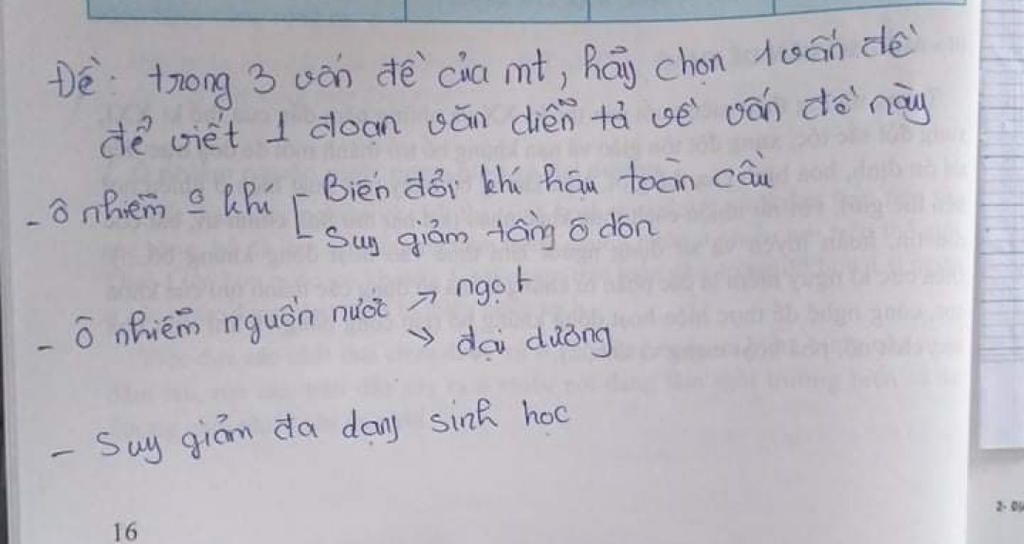 Đề: trong 3 vấn đề của mt, hãy chọn 1 vấn đề
để viết 1 đoạn văn diễn tả về vấn đề này
- ô nhiễm o khí [ Biến đổi khí hậu toàn cầu
Suy giảm tầng ô dôn
- ô nhiễm nguồn nước → ngọt
→ đại dương
- Suy giảm đa dạng sinh học
16